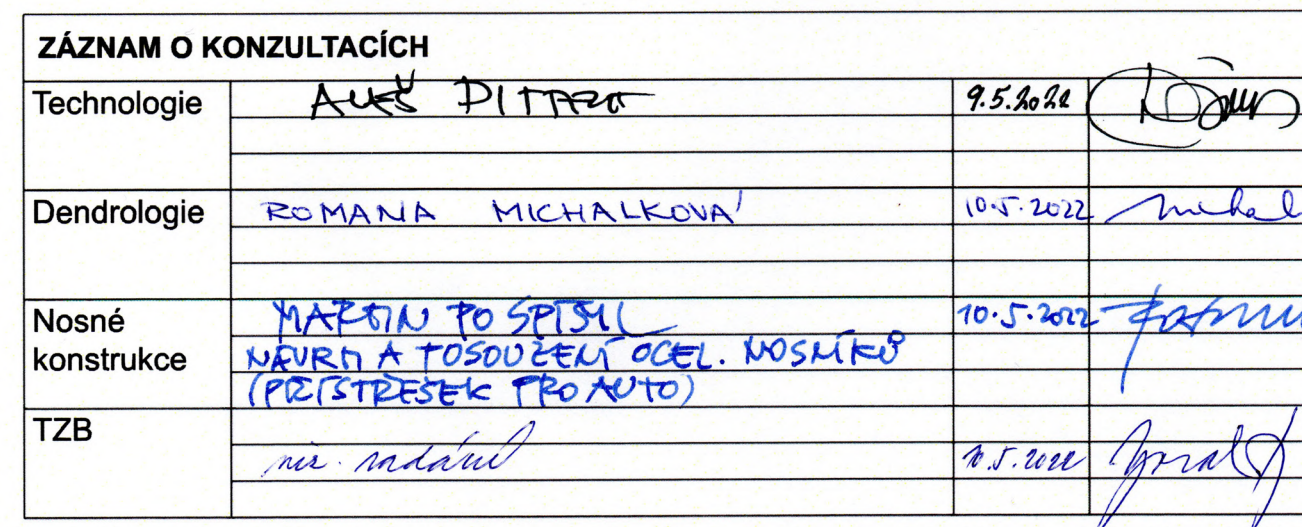 ZÁZNAM O KONZULTACÍCH
Technologie ALEŠ 9.5.2022
Dendrologie ROMANA MICHALKOVÁ 10.5.2022
Nosné konstrukce MARTIN POSPÍŠIL 10.5.2022
NÁVRH A POSOUZENÍ OCEL. NOSNÍKŮ
(PŘÍSTŘEŠEK PRO AUTO)
TZB
viz. zadání 10.5.2022